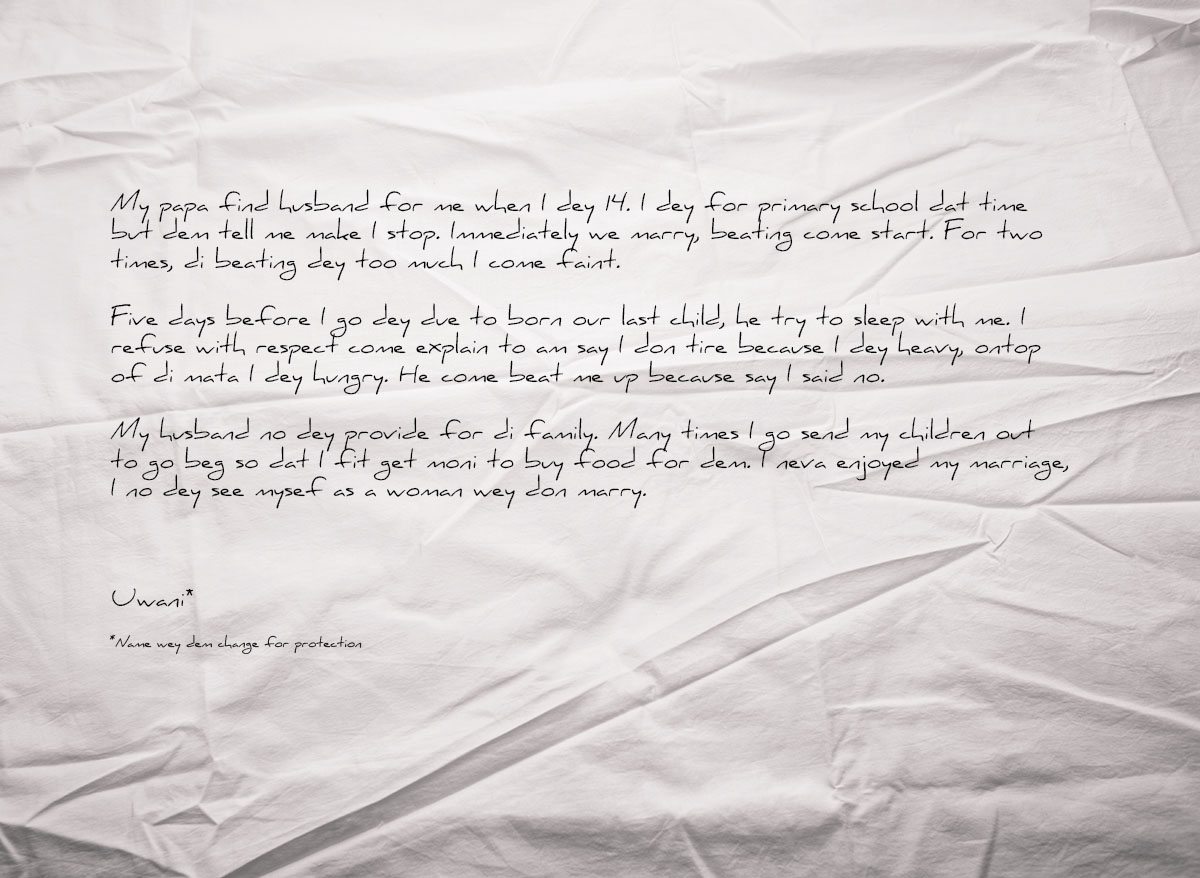 My papa find husband for me when I dey 14. I dey for primary school dat time
but dem tell me make I stop. Immediately we marry, beating come start. For two
times, di beating dey too much I come faint.
Five days before I go dey due to born our last child, he try to sleep with me. I
refuse with respect come explain to am say I don tire because I dey heavy, ontop
of di mata I dey hungry. He come beat me up because say I said no.
My husband no dey provide for di family. Many times I go send my children out
to go beg so dat I fit get moni to buy food for dem. I neva enjoyed my marriage,
I no dey see mysef as a woman wey don marry.
Uwani*
*Name wey dem change for protection